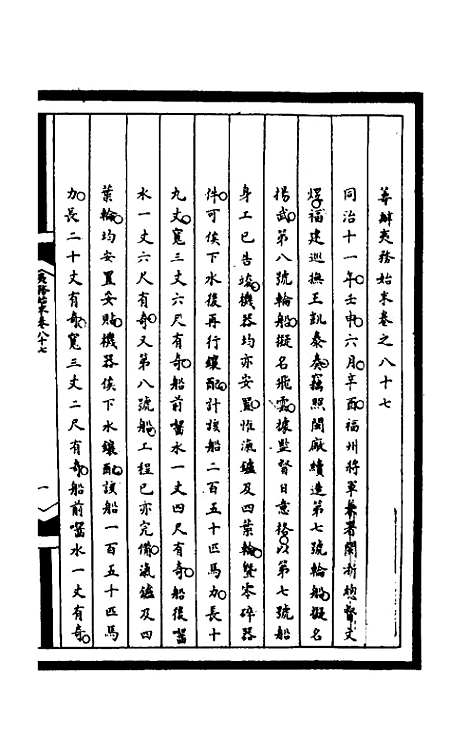 籌辦夷務始末卷之八十七
同治十一年壬申六月辛酉福州將軍兼署閩浙總督文
煜福建巡撫王凱泰奏竊照閩廠續造第七號輪船擬名
揚武第八號輪船擬名飛雲據監督日意格以第七號船
身工已告竣機器均亦安置惟汽鑪及四葉輪暨零碎器
件可俟下水後再行鑲配計該船二百五十匹馬力長十
九丈寬三丈六尺有奇船前喫水一丈四尺有奇船後喫
水一丈六尺有奇又第八號船工程已亦完備汽鑪及四
葉輪均安置妥貼機器俟下水鑲配該船一百五十匹馬
力長二十丈有奇寬三丈二尺有奇船前喫水一丈有奇
夷務始末卷八十七
一